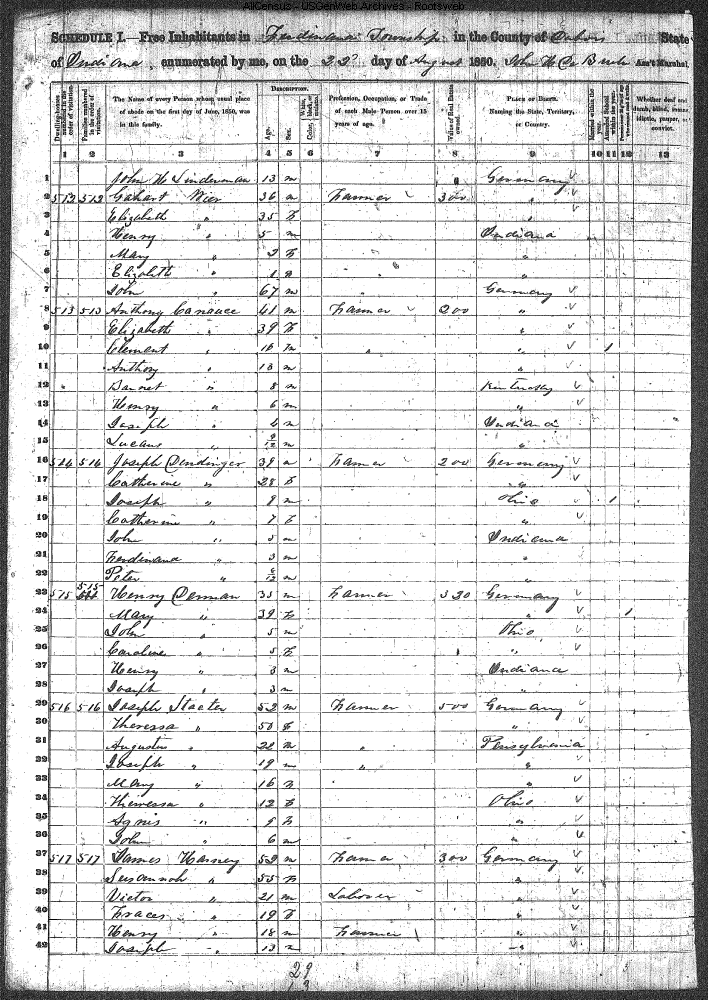 AllCensus - USGenWeb Archives - Rootsweb
SCHEDULE I.—Free Inhabitants in Ferdinand Township in the County of Dubois State
of Indiana, enumerated by me, on the 22d day of August 1850. Ass't Marshal.
DESCRIPTION.
Dwelling-houses numbered in the order of visitation. Families numbered in the order of visitation. The Name of every Person whose usual place of abode on the first day of June, 1850, was in this family. Age. Sex. Color, White, black, or mulatto. Profession, Occupation, or Trade of each Male Person over 15 years of age. Value of Real Estate owned. PLACE OF BIRTH. Naming the State, Territory, or Country. Married within the year. Attended School within the year. Whether deaf and dumb, blind, insane, idiotic, pauper, or convict.
1 2 3 4 5 6 7 8 9 10 11 12 13
1 John H Linderman 13 m Germany
2 512 512 Gahart Wier 36 m Farmer 300 "
3 Elizabeth " 35 f "
4 Henry " 5 m Indiana
5 Mary " 3 f "
6 Elizabeth " 1 f "
7 John " 67 m " Germany
8 513 513 Anthony Canauce 41 m Farmer 200 "
9 Elizabeth " 39 f "
10 Clement " 16 m " " 1
11 Anthony " 10 m "
12 Barnet " 8 m Kentucky
13 Henry " 6 m "
14 Joseph " 4 m Indiana
15 Lucaus " 9/12 m "
16 514 514 Joseph Dendinger 39 m Farmer 200 Germany
17 Catherine " 28 f "
18 Joseph " 9 m Ohio 1
19 Catherine " 7 f "
20 John " 5 m Indiana
21 Ferdinand " 3 m "
22 Peter " 6/12 m "
23 515 515 Henry Derman 35 m Farmer 530 Germany
24 Mary " 39 f " 1
25 John " 5 m Ohio
26 Caroline " 5 f "
27 Henry " 3 m Indiana
28 Joseph " 3 m "
29 516 516 Joseph Staeter 52 m Farmer 500 Germany
30 Theressa " 50 f "
31 Augustus " 22 m " Pensylvania
32 Joseph " 19 m " "
33 Mary " 16 f "
34 Theressa " 12 f Ohio
35 Agnis " 9 f "
36 John " 6 m "
37 517 517 James Harney 52 m Farmer 300 Germany
38 Susannah " 55 f "
39 Victor " 21 m Laborer "
40 Fraces " 19 f "
41 Henry " 18 m Farmer "
42 Joseph " 13 m "
29